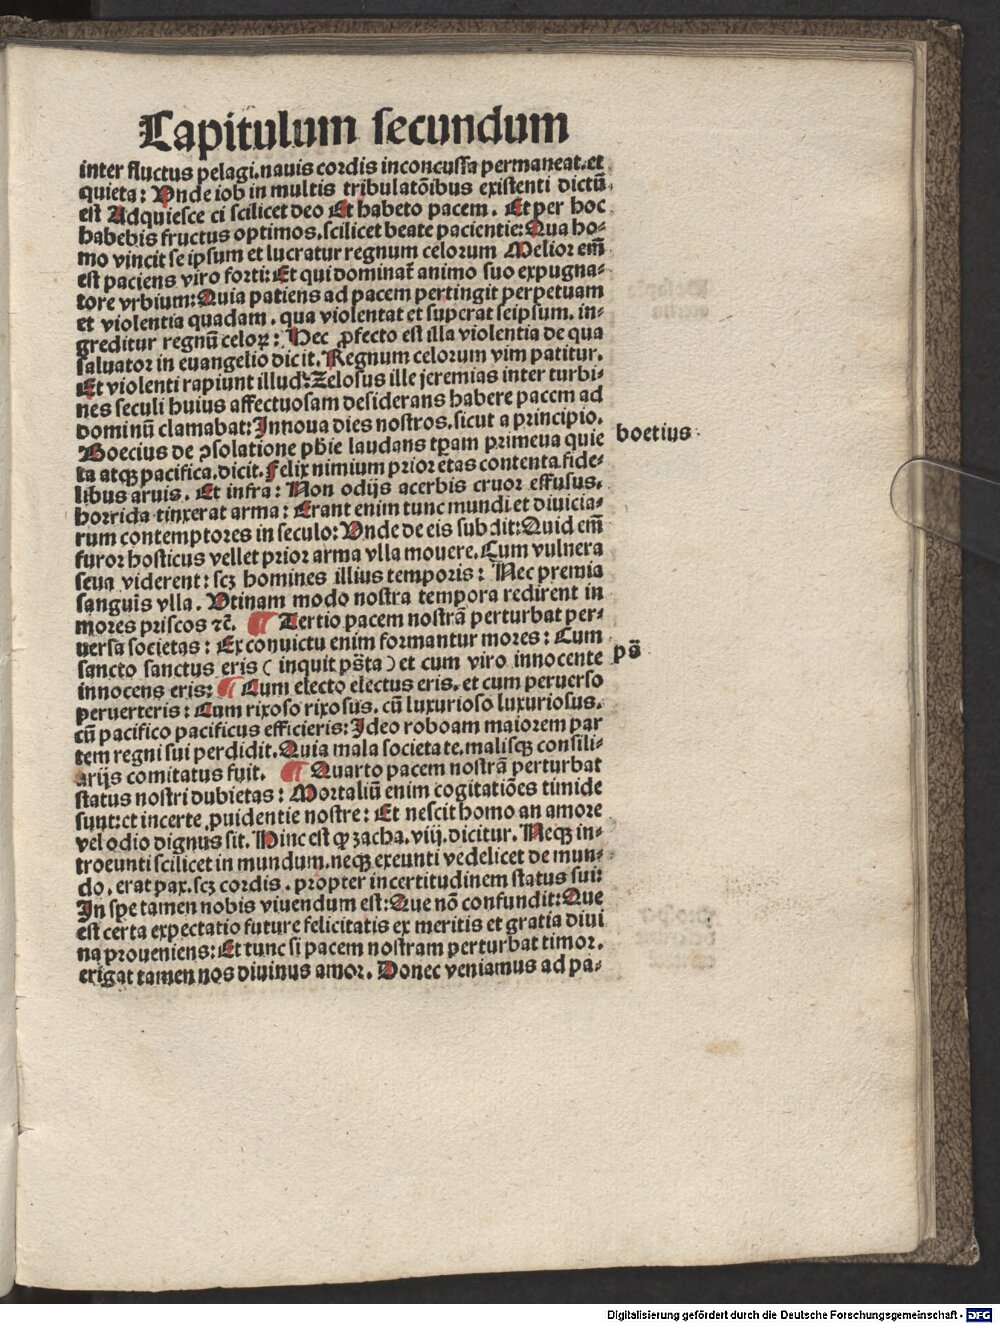 Capitulum secundum
inter fluctus pelagi.nauis cordis inconcussa permaneat.et
quieta: Vnde iob in multis tribulatõibus existenti dictũ
est Adquiesce ei scilicet deo Et habeto pacem. Et per hoc
habebis fructus optimos.scilicet beate pacientie:Qua ho-
mo vincit se ipsum et lucratur regnum celorum Melior em̃
est paciens viro forti:Et qui dominat̃ animo suo expugna-
tore vrbium:Quia patiens ad pacem pertingit perpetuam
et violentia quadam. qua violentat et superat seipsum. in-
greditur regnũ celoꝝ: Hec ꝓfecto est illa violentia de qua
saluator in euangelio dicit.Regnum celorum vim patitur.
Et violenti rapiunt illud:Zelosus ille jeremias inter turbi-
nes seculi huius affectuosam desiderans habere pacem ad
dominũ clamabat:Innoua dies nostros.sicut a principio.
Boecius de ꝯsolatione pħie laudans tp̃am primeua quie
ta atqꝫ pacifica.dicit.Felix nimium prior etas contenta fide-
libus aruis. Et infra: Non odijs acerbis cruor effusus.
horrida tinxerat arma: Erant enim tunc mundi et diuicia-
rum contemptores in seculo: Vnde de eis subdit:Quid em̃
furor hosticus vellet prior arma vlla mouere.Cum vulnera
seua viderent: scꝫ homines illius temporis: Nec premia
sanguĩs vlla. Vtinam modo nostra tempora redirent in
mores priscos ⁊c̃. ¶ Tertio pacem nostrã perturbat per-
uersa societas: Ex conuictu enim formantur mores: Cum
sancto sanctus eris ( inquit ps̃ta ) et cum viro innocente
innocens eris: ¶ Cum electo electus eris. et cum peruerso
peruerteris: Cum rixoso rixosus. cũ luxurioso luxuriosus.
cũ pacifico pacificus efficieris: Ideo roboam maiorem par
tem regni sui perdidit.Quia mala societate.malisqꝫ consili-
arijs comitatus fuit. ¶ Quarto pacem nostrã perturbat
status nostri dubietas: Mortaliũ enim cogitatiões timide
sunt:et incerte ꝓuidentie nostre: Et nescit homo an amore
vel odio dignus sit. Hinc est ꝙ zacha. viij. dicitur. Neqꝫ in-
troeunti scilicet in mundum.neqꝫ exeunti vedelicet de mun-
do. erat pax. scꝫ cordis. propter incertitudinem status sui:
In spe tamen nobis viuendum est:Que nõ confundit:Que
est certa expectatio future felicitatis ex meritis et gratia diui
na proueniens:Et tunc si pacem nostram perturbat timor.
erigat tamen nos diuinus amor. Donec veniamus ad pa-
boetius
ps̃
Digitalisierung gefördert durch die Deutsche Forschungsgemeinschaft - DFG